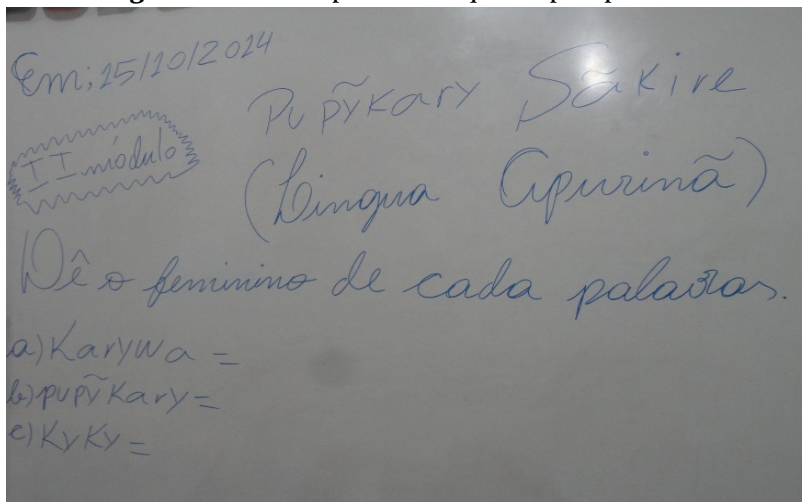 Em; 15/10/2014
Pupỹkary Sãkire
II módulo
(Língua Apurinã)
Dê o feminino de cada palavras.
a) Karywa =
b) pupỹkary =
c) KyKy =